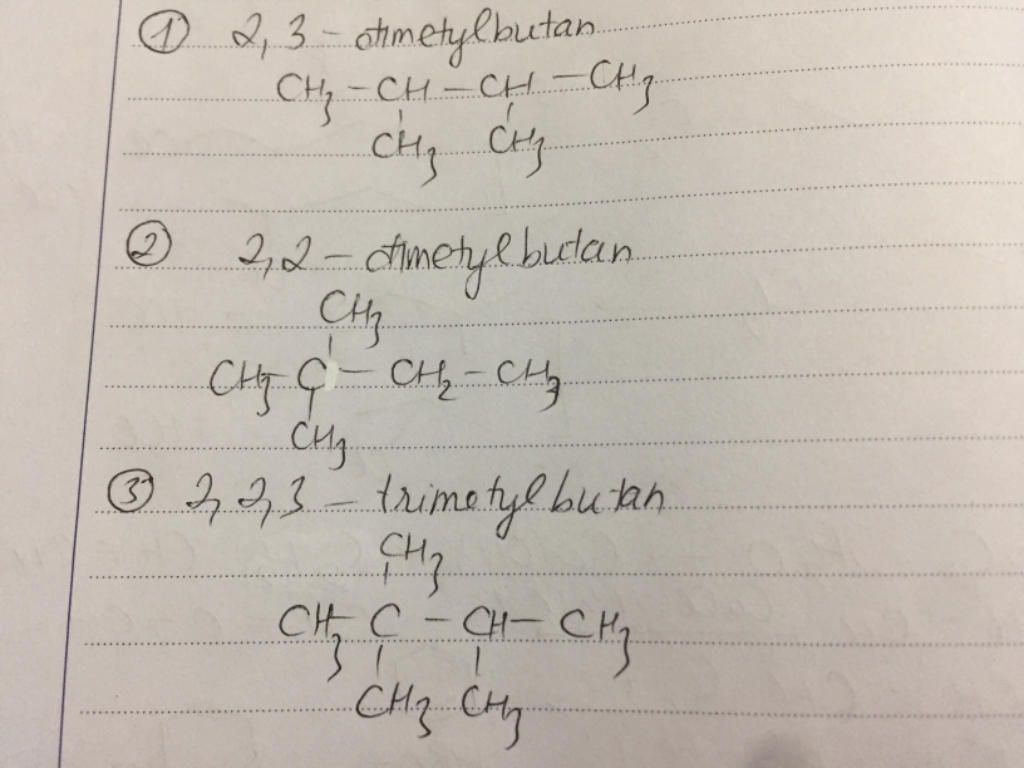 ① 2,3 - đimetylbutan
CH3 - CH - CH - CH3
CH3 CH3
② 2,2 - đimetylbutan
CH3
CH3 - C - CH2 - CH3
CH3
③ 2,2,3 - trimetylbutan
CH3
CH3 - C - CH - CH3
CH3 CH3